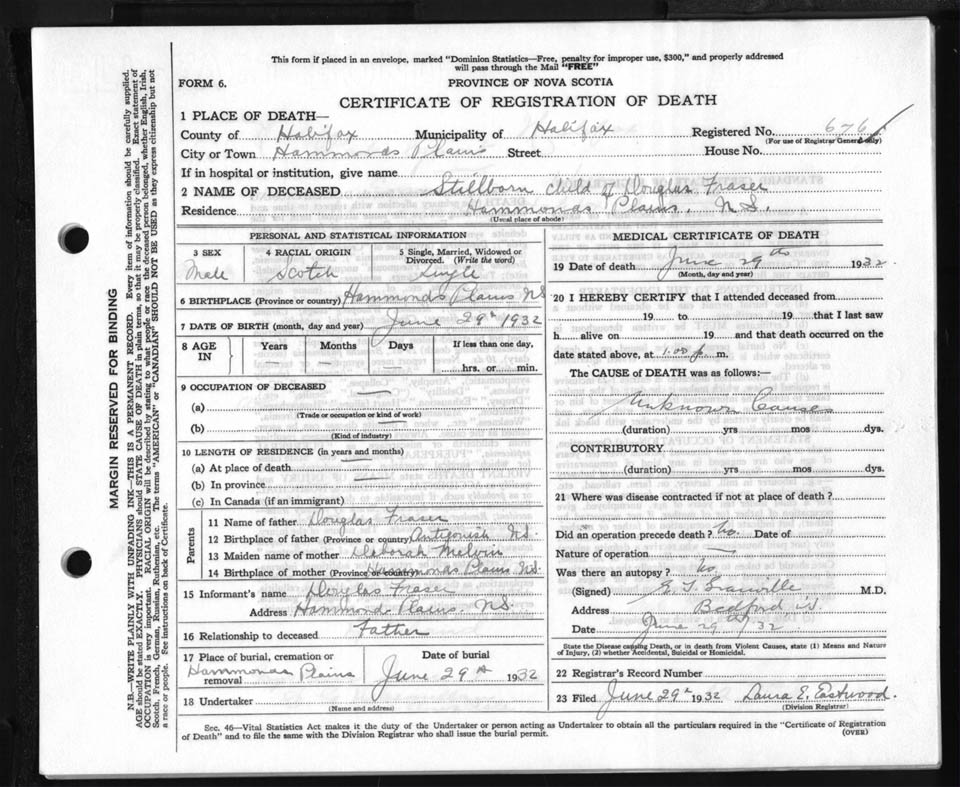 This form if placed in an envelope, marked "Dominion Statistics—Free, penalty for improper use, $300," and properly addressed
will pass through the Mail "FREE"
FORM 6. PROVINCE OF NOVA SCOTIA
CERTIFICATE OF REGISTRATION OF DEATH
1 PLACE OF DEATH—
County of Halifax Municipality of Halifax Registered No. 676
(For use of Registrar General only)
City or Town Hammonds Plains Street House No.
If in hospital or institution, give name
2 NAME OF DECEASED Stillborn child of Douglas Fraser
Residence Hammonds Plains, N.S.
(Usual place of abode)
PERSONAL AND STATISTICAL INFORMATION
3 SEX 4 RACIAL ORIGIN 5 Single, Married, Widowed or
Divorced. (Write the word)
Male Scotch Single
6 BIRTHPLACE (Province or country) Hammonds Plains NS
7 DATE OF BIRTH (month, day and year) June 29th 1932
8 AGE IN Years Months Days If less than one day,
— — — hrs. or min.
9 OCCUPATION OF DECEASED
(a) —
(Trade or occupation or kind of work)
(b)
(Kind of industry)
10 LENGTH OF RESIDENCE (in years and months)
(a) At place of death —
(b) In province —
(c) In Canada (if an immigrant)
Parents
11 Name of father Douglas Fraser
12 Birthplace of father (Province or country) Antigonish NS.
13 Maiden name of mother Deborah Melvin
14 Birthplace of mother (Province or country) Hammonds Plains NS.
15 Informant's name Douglas Fraser
Address Hammonds Plains. NS.
16 Relationship to deceased Father
17 Place of burial, cremation or removal Date of burial
Hammonds Plains June 29th 1932
18 Undertaker
(Name and address)
MEDICAL CERTIFICATE OF DEATH
19 Date of death June 29th 1932
(Month, day and year)
20 I HEREBY CERTIFY that I attended deceased from
19 to 19 that I last saw
h alive on 19 and that death occurred on the
date stated above, at 1.00 p m.
The CAUSE of DEATH was as follows:—
Unknown Cause
(duration) yrs mos dys.
CONTRIBUTORY
(duration) yrs mos dys.
21 Where was disease contracted if not at place of death?
Did an operation precede death? No. Date of
Nature of operation —
Was there an autopsy? No
(Signed) M.D.
Address Bedford
Date June 29th/32
State the Disease causing Death, or in death from Violent Causes, state (1) Means and Nature
of Injury, (2) whether Accidental, Suicidal or Homicidal.
22 Registrar's Record Number
23 Filed June 29th 1932 Laura E. Eastwood.
(Division Registrar)
Sec. 46—Vital Statistics Act makes it the duty of the Undertaker or person acting as Undertaker to obtain all the particulars required in the "Certificate of Registration
of Death" and to file the same with the Division Registrar who shall issue the burial permit. (OVER)
MARGIN RESERVED FOR BINDING
N.B.—WRITE PLAINLY WITH UNFADING INK—THIS IS A PERMANENT RECORD. Every item of information should be carefully supplied.
AGE should be stated EXACTLY. PHYSICIANS should STATE CAUSE OF DEATH in plain terms, so that it may be properly classified. Exact statement of
OCCUPATION is very important. RACIAL ORIGIN will be described by stating to what people or race the deceased person belonged, whether English, Irish,
Scotch, French, German, Russian, Ruthenian, etc. The terms "AMERICAN" or "CANADIAN" SHOULD NOT BE USED as they express citizenship but not
a race or people. See instructions on back of Certificate.